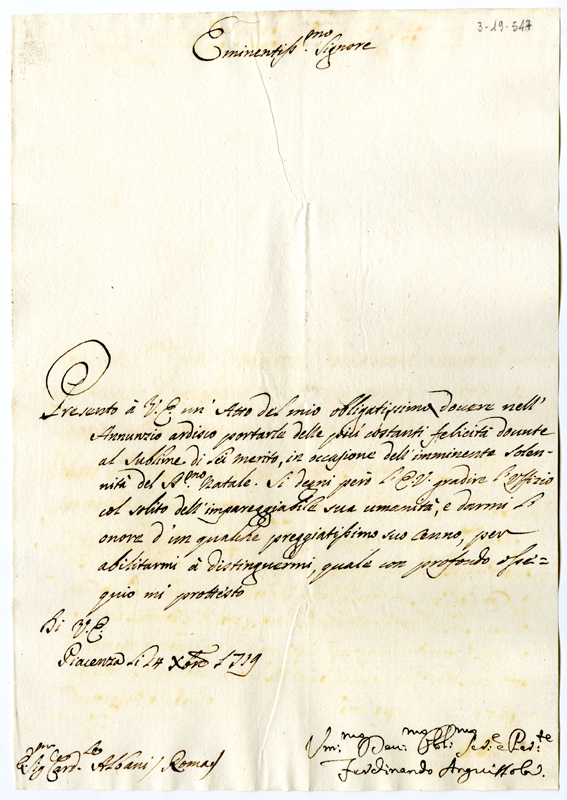 3-19-547
Eminentiss.mo Signore
Presento à V. E. un' Atto del mio obligatissimo dovere nell'
Annunzio ardisco portarle delle più costanti felicità dovute
al sublime di Lei merito, in occasione dell' imminente Solen-
nità del S.mo Natale. Si degni però l' E. V. gradire l' Offizio
col solito dell' impareggiabile sua umanità, e darmi l'
onore d' un qualche preggiatissimo suo cenno, per
abilitarmi à distinguermi, quale con profondo osse=
quio mi prottesto
Di V. E.
Piacenza li 24 Xbre 1719
Sig. Card.le Albani / Roma /
Um.mo Dev.mo Obli.mo Ser.e
Ferdinando Anguissola